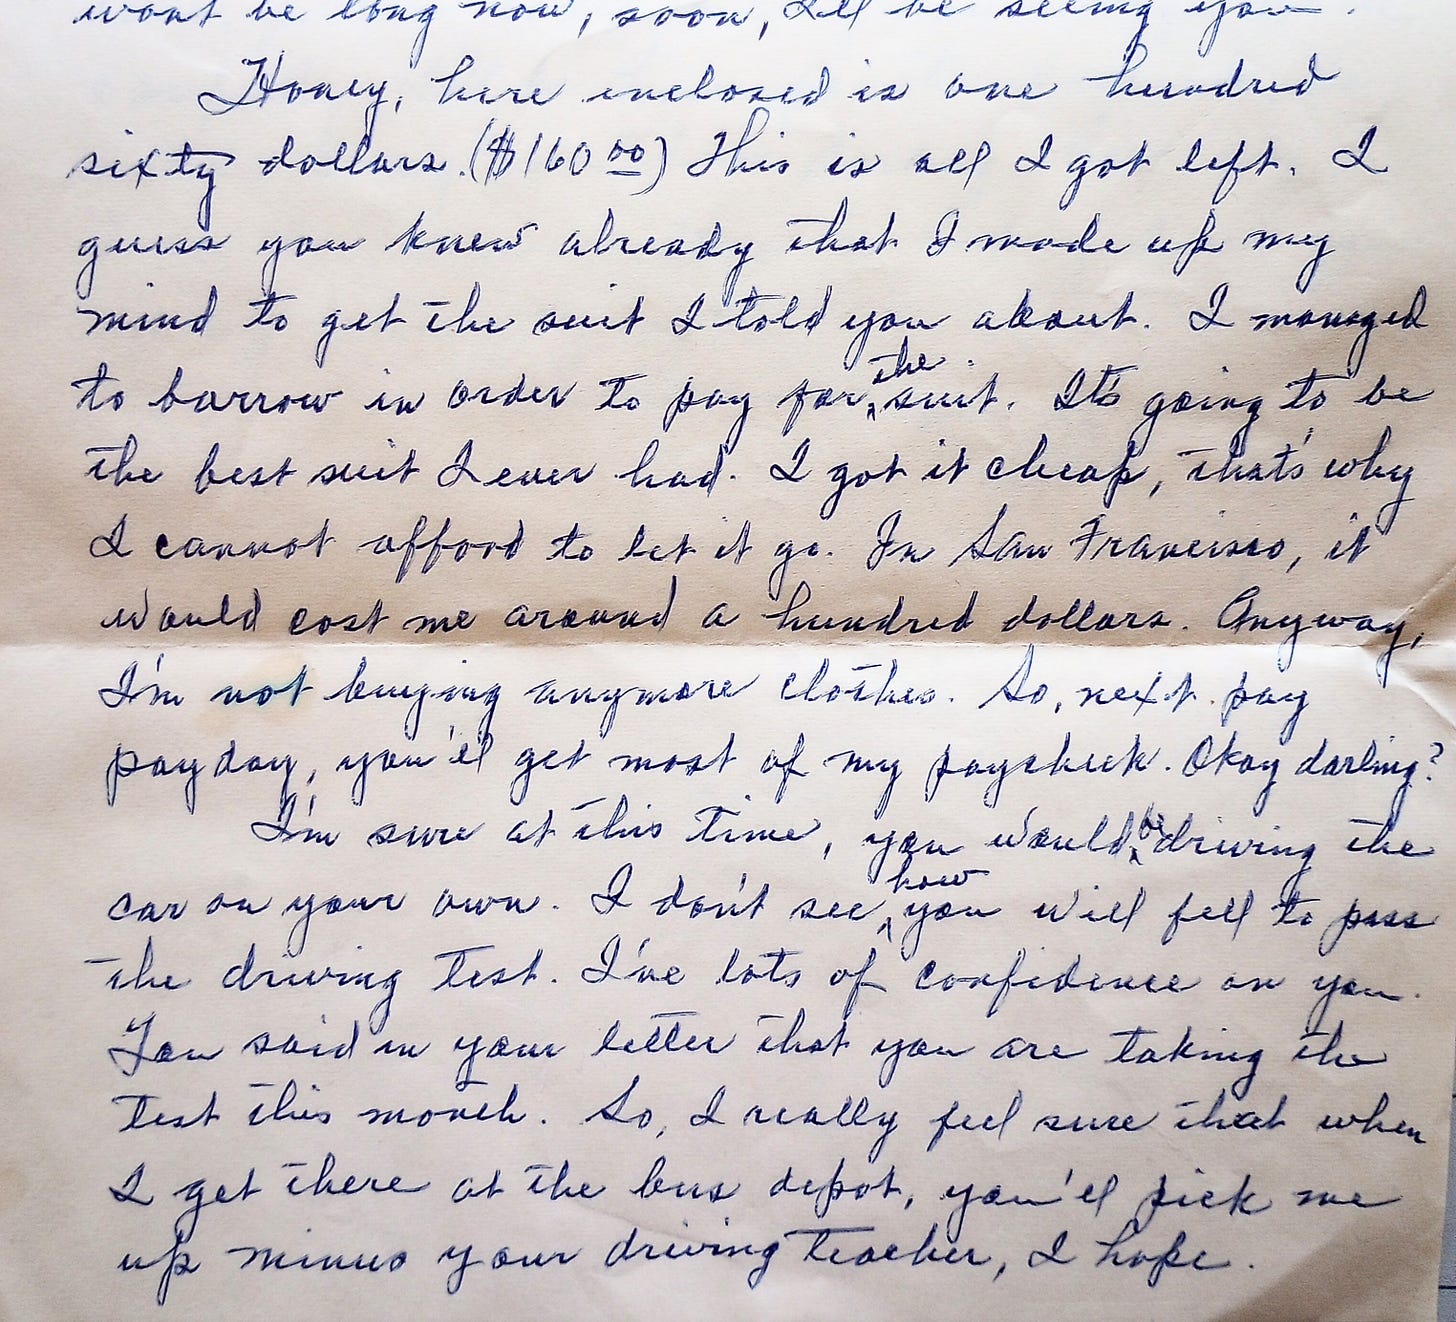 wont be long now, soon, I'll be seeing you.
Honey, here enclosed is one hundred
sixty dollars. ($160 00) This is all I got left. I
guess you knew already that I made up my
mind to get the suit I told you about. I managed
to borrow in order to pay for the suit. It's going to be
the best suit I ever had. I got it cheap, that's why
I cannot afford to let it go. In San Francisco, it
would cost me around a hundred dollars. Anyway,
I'm not buying anymore clothes. So, next pay
payday, you'll get most of my paycheck. Okay darling?
I'm sure at this time, you would be driving the
car on your own. I don't see how you will fell to pass
the driving test. I've lots of confidence on you.
You said in your letter that you are taking the
test this month. So, I really feel sure that when
I get there at the bus depot, you'll pick me
up minus your driving teacher, I hope.